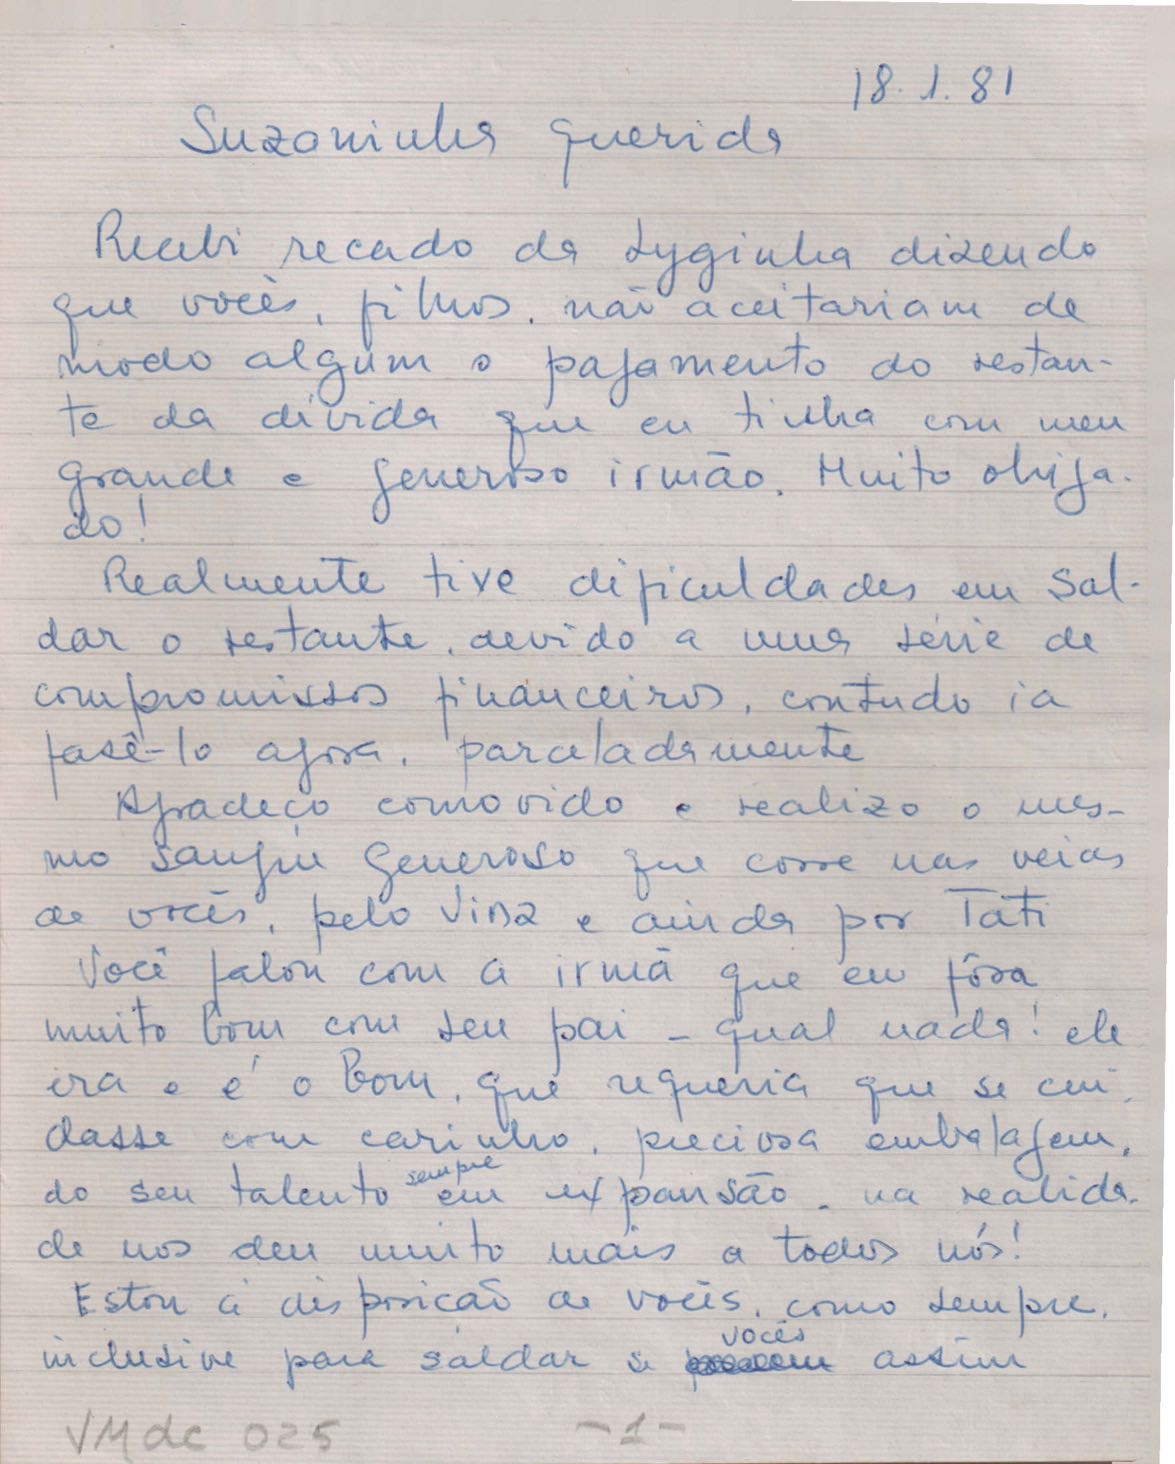 18.1.81
Suzaninha querida
Recebi recado da Lyginha dizendo
que vocês, filhos, não aceitariam de
modo algum o pagamento do restan-
te da dívida que eu tinha com meu
grande e generoso irmão. Muito obriga-
do!
Realmente tive dificuldades em sal-
dar o restante, devido a uma série de
compromissos financeiros, contudo ia
fasê-lo agora, parceladamente
Agradeço comovido e realizo o mes-
mo sangue generoso que corre nas veias
de vocês, pelo Vina e ainda por Tati
Você falou com a irmã que eu fôra
muito bom com seu pai - qual nada! ele
era e é o bom, que requeria que se cui-
dasse com carinho, preciosa embalagem,
do seu talento sempre em expansão - na realida-
de nos deu muito mais a todos nós!
Estou à disposição de vocês, como sempre,
inclusive para saldar se vocês assim
VMdc 025 -1-